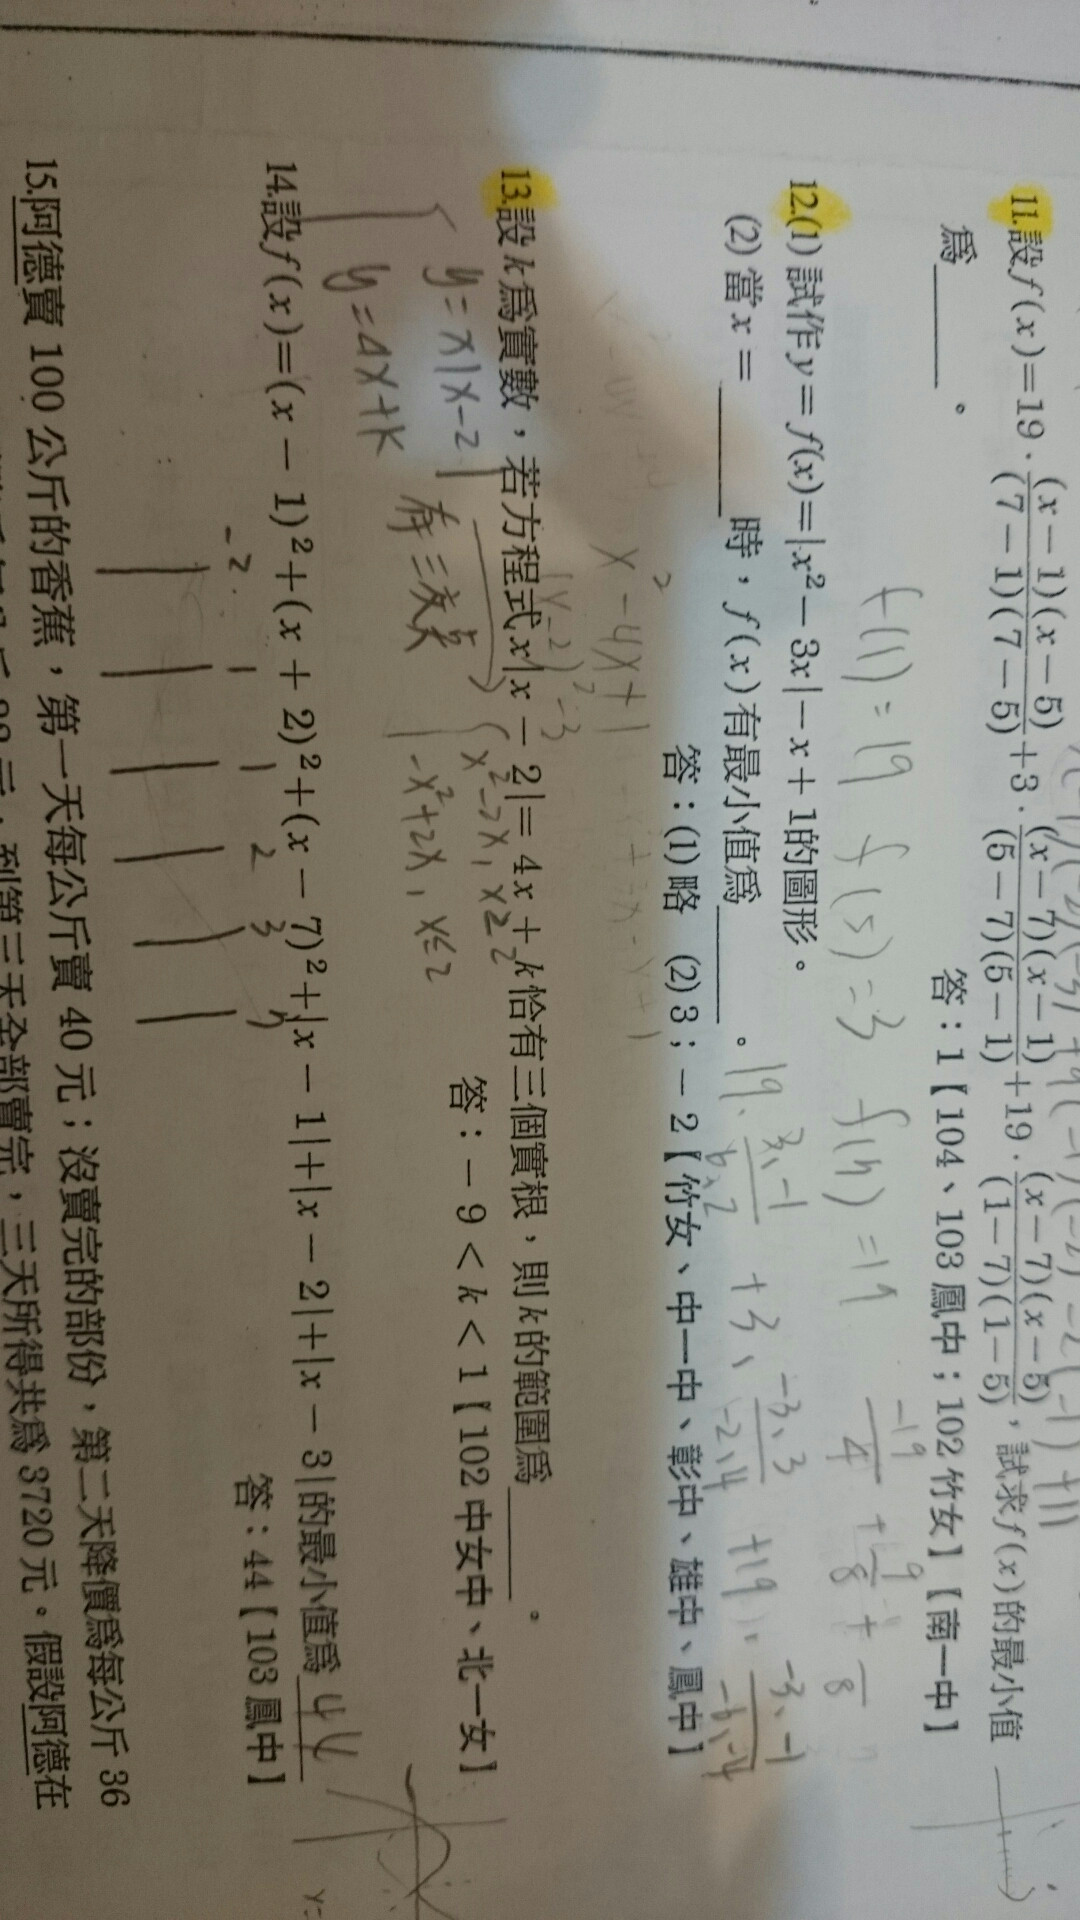 11.設f(x)=19·(x-1)(x-5)/(7-1)(7-5)+3·(x-7)(x-1)/(5-7)(5-1)+19·(x-7)(x-5)/(1-7)(1-5),試求f(x)的最小值
為______。
答:1【104、103鳳中;102竹女】【南一中】
f(1)=19 f(5)=3 f(7)=19
12.(1)試作y=f(x)=|x²-3x|-x+1的圖形。
(2)當x=______時,f(x)有最小值為______。
答:(1)略 (2)3;-2【竹女、中一中、彰中、雄中、鳳中】
x²-4x+1
13.設k為實數,若方程式x|x-2|=4x+k恰有三個實根,則k的範圍為______。
答:-9<k<1【102中女中、北一女】
y=x|x-2|
x²-2x, x≥2
-x²+2x, x≤2
y=4x+k
有三交點
14.設f(x)=(x-1)²+(x+2)²+(x-7)²+|x-1|+|x-2|+|x-3|的最小值為 44
答:44【103鳳中】
-2 1 1 2 3 7
15.阿德賣100公斤的香蕉,第一天每公斤賣40元;沒賣完的部份,第二天降價為每公斤36
到第三天全部賣完,三天所得共為3720元。假設阿德在